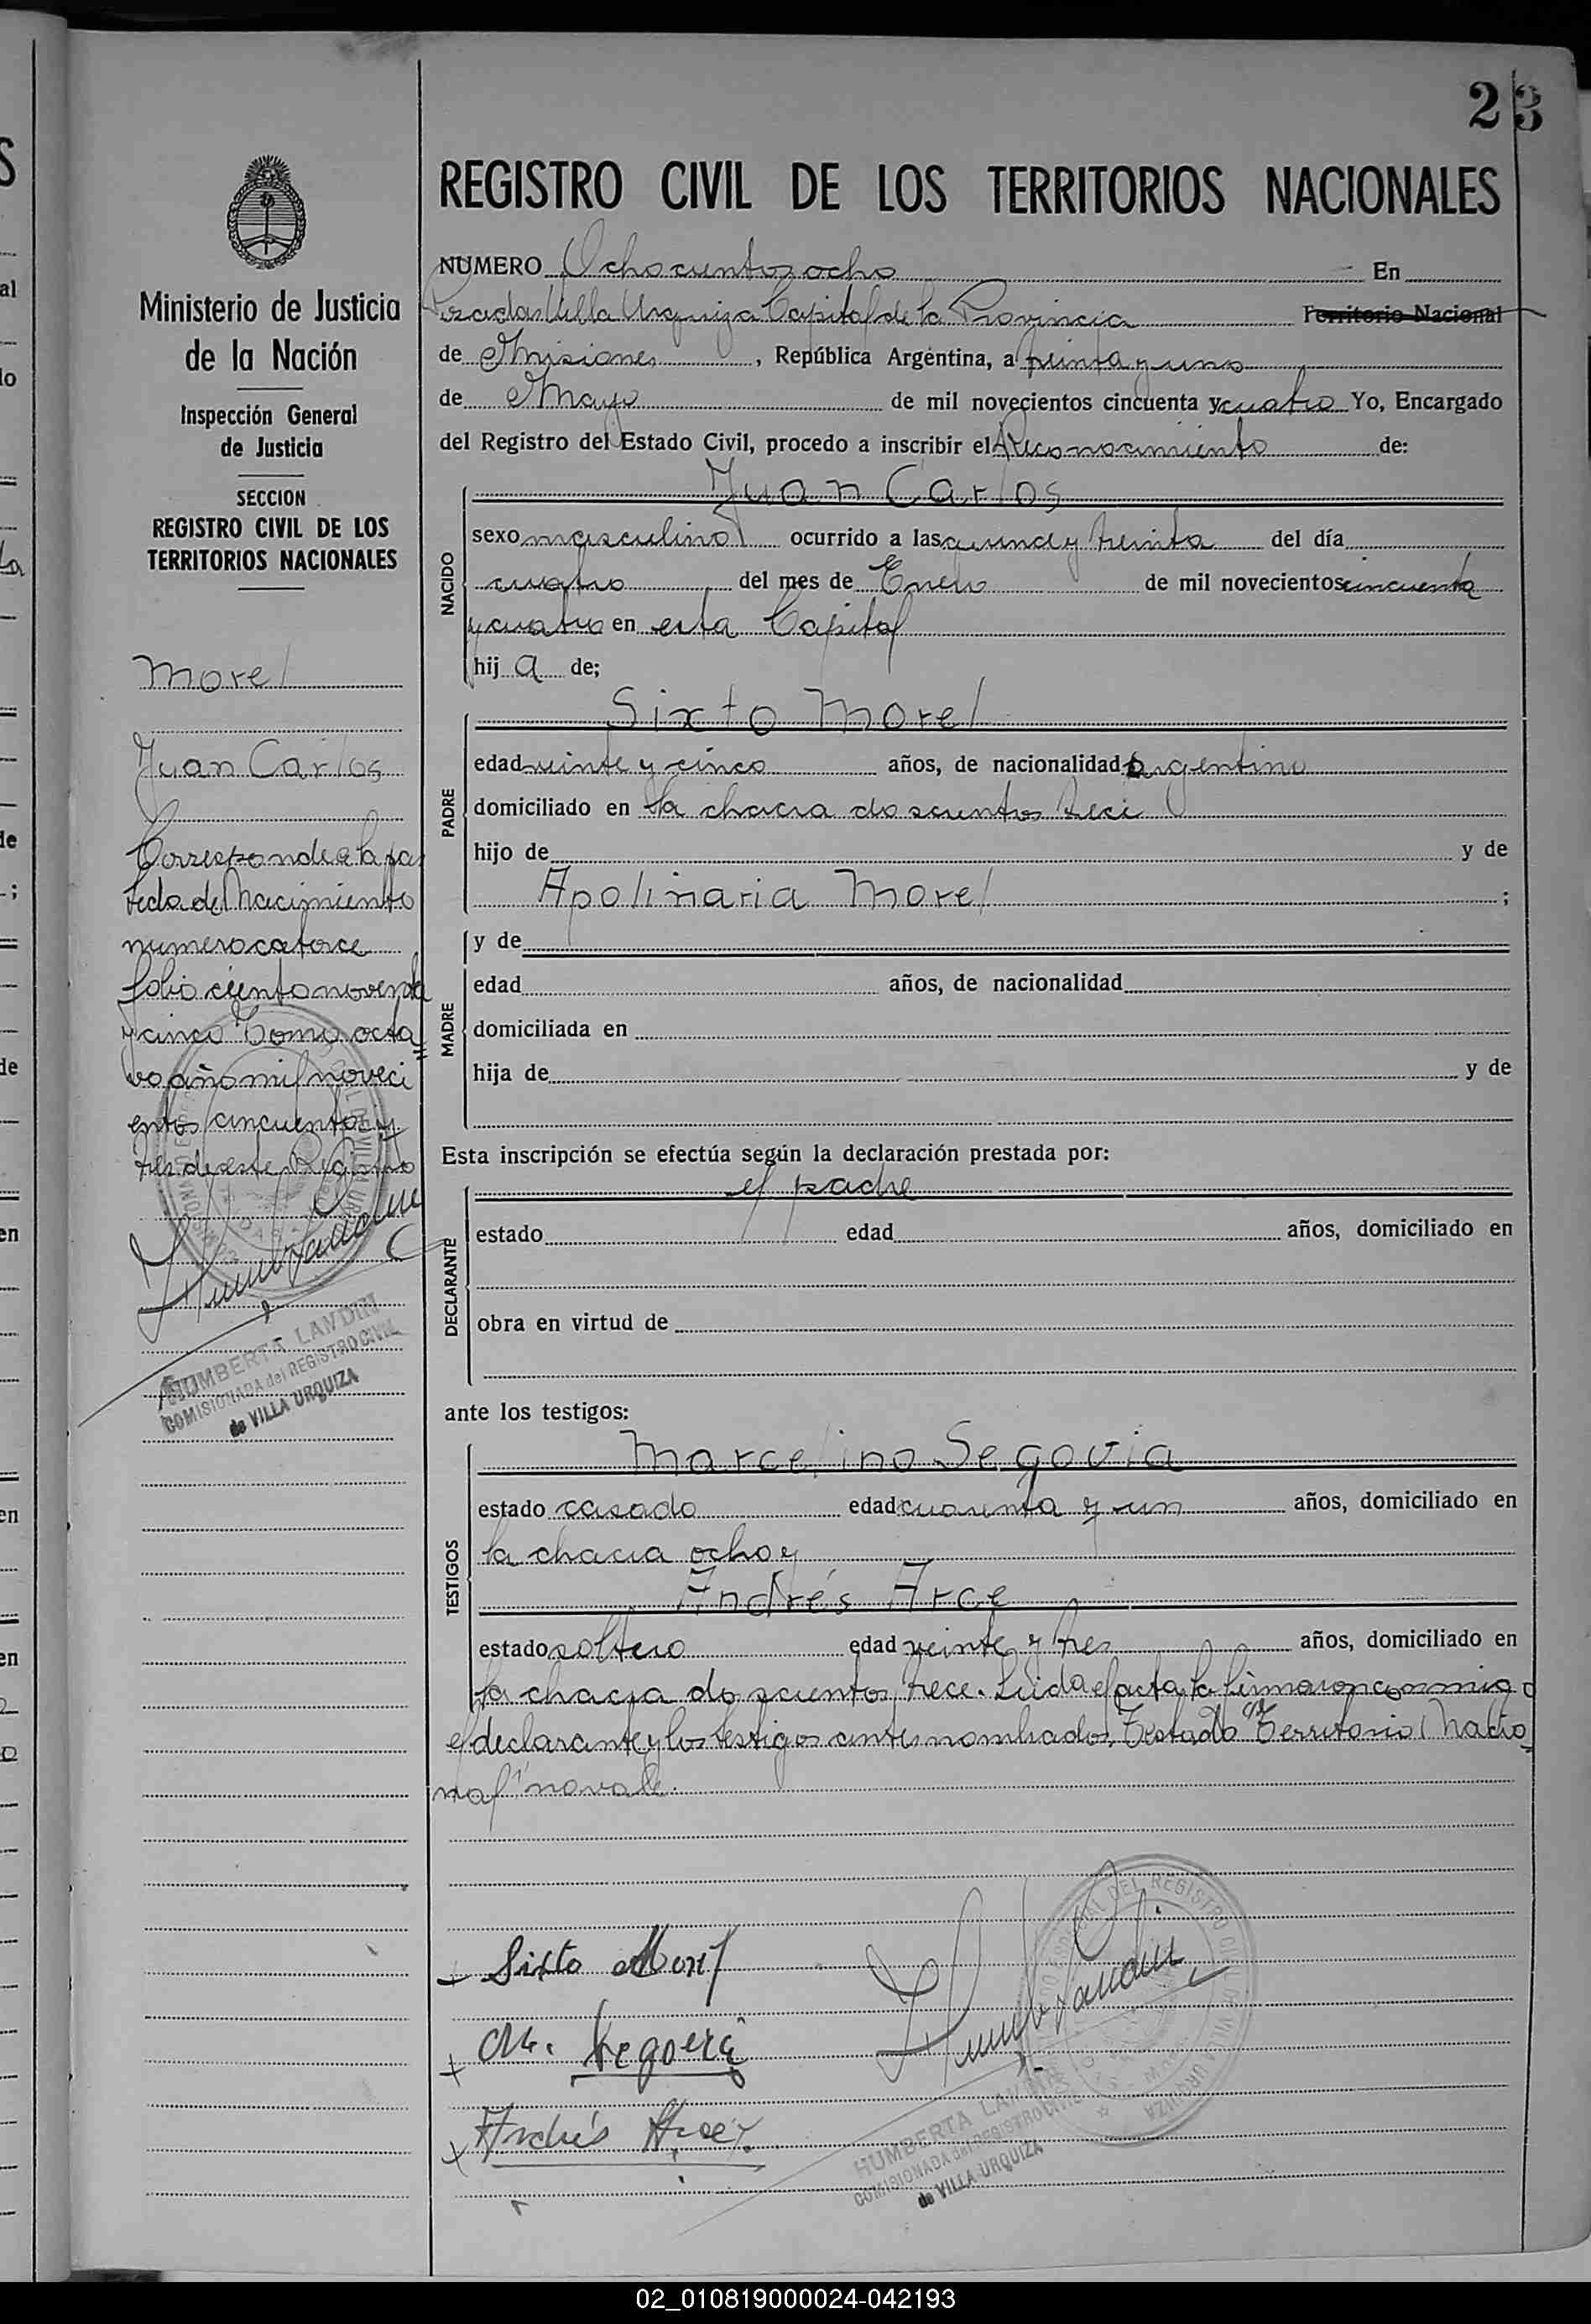 23
REGISTRO CIVIL DE LOS TERRITORIOS NACIONALES
NUMERO Ochocientos ocho En
Posadas Villa Urquiza Capital de la Provincia Territorio Nacional
de Misiones, República Argentina, a treinta y uno
de Mayo de mil novecientos cincuenta y cuatro Yo, Encargado
del Registro del Estado Civil, procedo a inscribir el Reconocimiento de:
Juan Carlos
NACIDO
sexo masculino ocurrido a las quince y treinta del día
cuatro del mes de Enero de mil novecientos cincuenta
y cuatro en esta Capital
hij a de;
Sixto Morel
PADRE
edad veinte y cinco años, de nacionalidad argentino
domiciliado en la chacra doscientos trece
hijo de y de
Apolinaria Morel ;
MADRE
y de
edad años, de nacionalidad
domiciliada en
hija de y de
Esta inscripción se efectúa según la declaración prestada por:
el padre
DECLARANTE
estado edad años, domiciliado en
obra en virtud de
ante los testigos:
TESTIGOS
Marcelino Segovia
estado casado edad cuarenta y un años, domiciliado en
la chacra ocho y
Andrés Arce
estado soltero edad veinte y tres años, domiciliado en
la chacra doscientos trece. Leida el acta la firmaron conmigo
el declarante y los testigos antes nombrados. Testado "Territorio Nacio
nal" no vale.
Sixto Morel
M. Segovia
Andrés Arce
HUMBERTA LANDINI
COMISIONADA del REGISTRO CIVIL
de VILLA URQUIZA
Ministerio de Justicia
de la Nación
Inspección General
de Justicia
SECCION
REGISTRO CIVIL DE LOS
TERRITORIOS NACIONALES
Morel
Juan Carlos
Corresponde a la par
tida de Nacimiento
numero catorce
folio ciento noventa
y cinco Tomo octa
vo año mil noveci
entos cincuenta y
tres de este Registro
HUMBERTA LANDINI
COMISIONADA del REGISTRO CIVIL
de VILLA URQUIZA
02_010819000024-042193